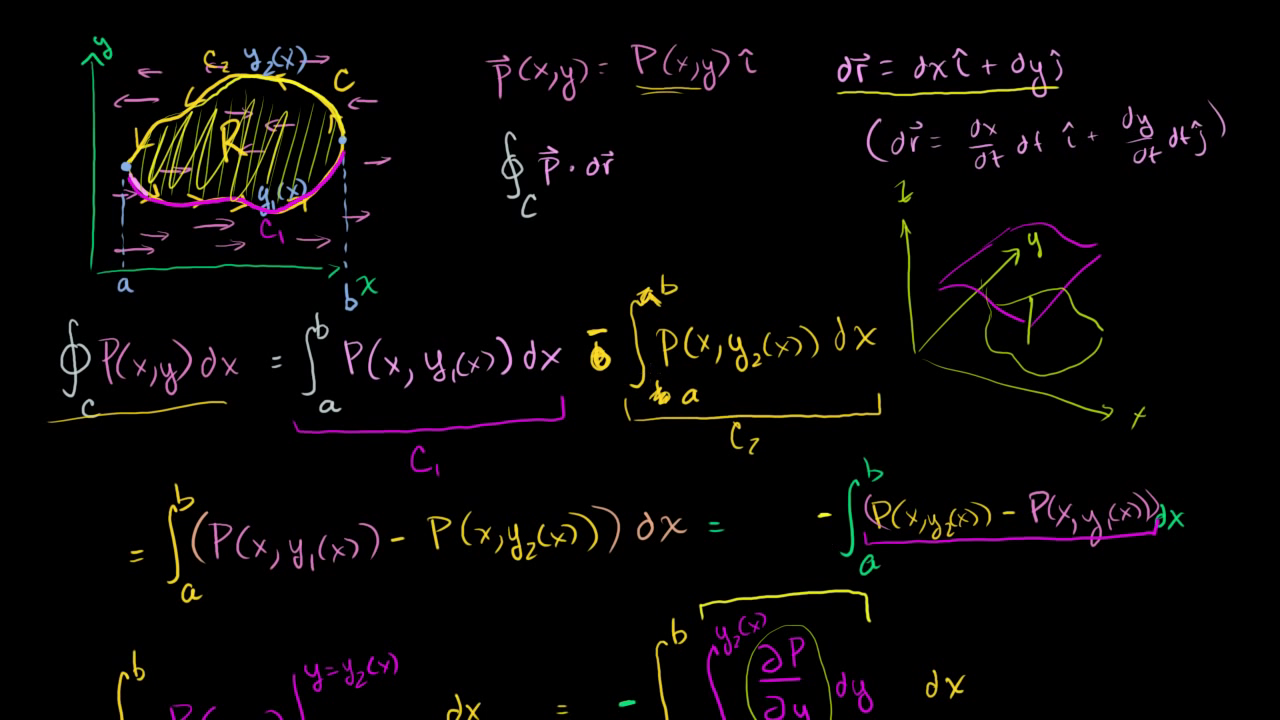 y
C₂ y₂(x) C
R
y₁(x)
C₁
a b x
P⃗(x,y) = P(x,y) î
∮_C P⃗ · dr⃗
dr⃗ = dx î + dy ĵ
(dr⃗ = dx/dt dt î + dy/dt dt ĵ)
z
y
x
∮_C P(x,y) dx = ∫_a^b P(x, y₁(x)) dx - ∫_a^b P(x, y₂(x)) dx
C₁ C₂
= ∫_a^b (P(x, y₁(x)) - P(x, y₂(x))) dx = - ∫_a^b (P(x, y₂(x)) - P(x, y₁(x))) dx
b y=y₂(x) dx = - ∫^b ∫^{y₂(x)} ∂P/∂y dy dx